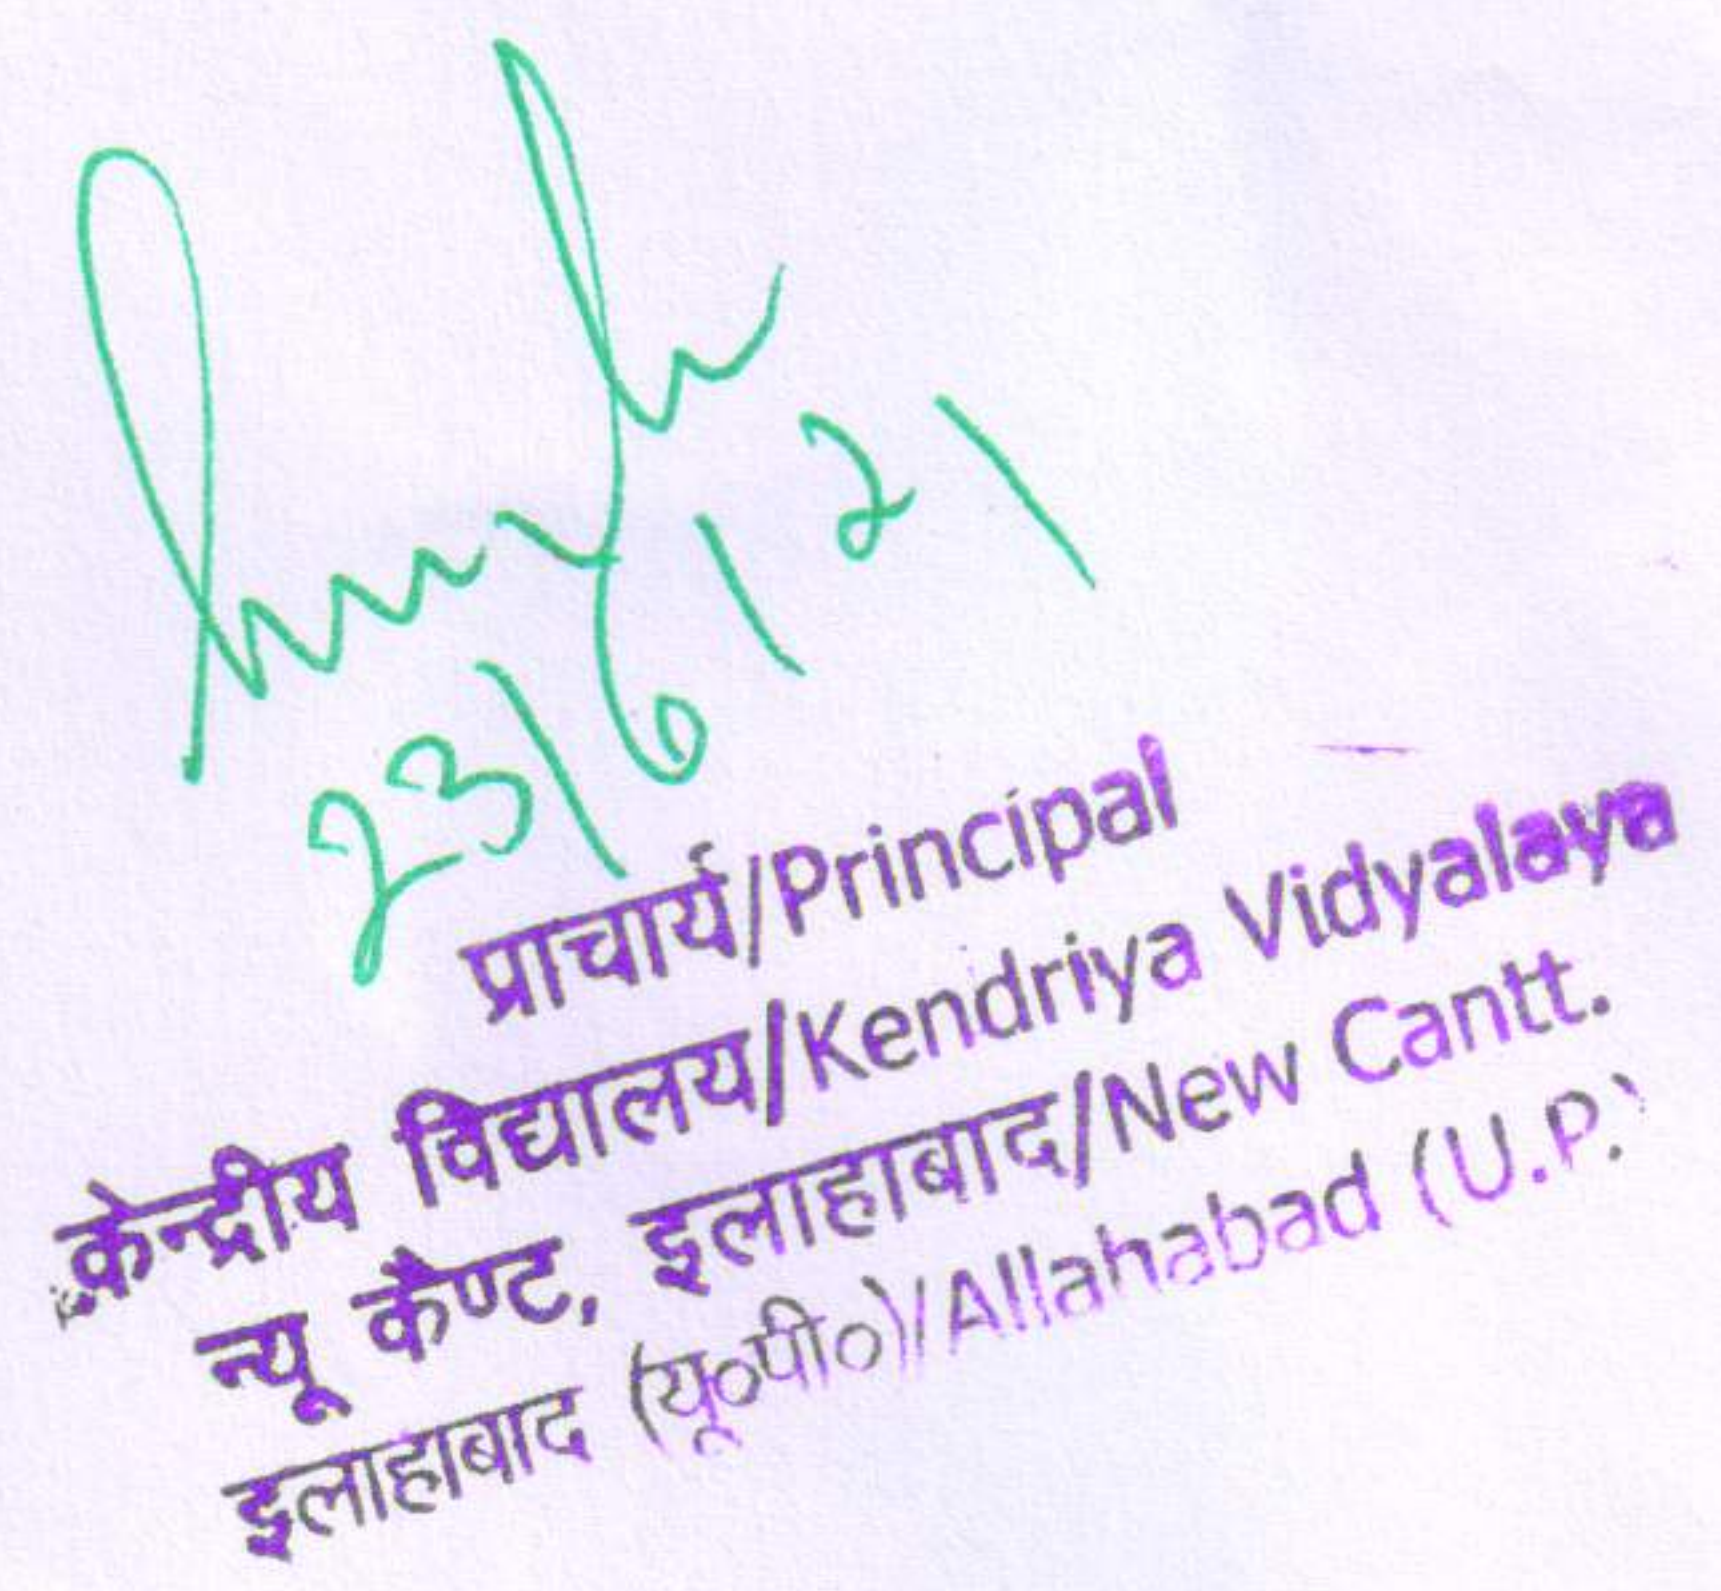 23/6/21
प्राचार्य/Principal
केन्द्रीय विद्यालय/Kendriya Vidyalaya
न्यू कैण्ट, इलाहाबाद/New Cantt.
इलाहाबाद (यू०पी०)/Allahabad (U.P.)